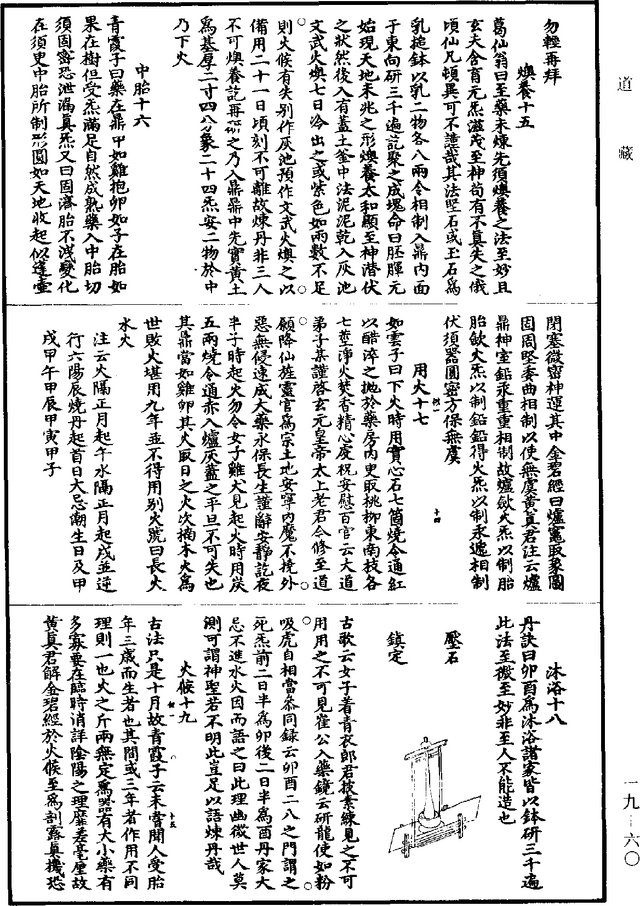 道藏
勿輕再拜
燠養十五
葛仙翁曰至藥未煉先須燠養之法至妙且
玄夫含育元炁滋茂至神苟有不真失之俄
頃仙凡頓異可不謹哉其法堅石或玉石為
乳搥鉢以乳二物各八兩令相制入鼎內面
于東向研三千遍訖聚之成塊命曰胚腪元
始現天地未兆之形燠養太和顧至神潛伏
之狀然後入有蓋土釜中法泥泥乾入灰池
文武火燠七日冷出之或紫色如兩數不足
則火候有失別作灰池預作文武火燠之以
備用二十一日頃刻不可離故煉丹非三人
不可燠養訖再研之乃入鼎鼎中先實黃土
為基厚二寸四八分象二十四炁安二物於中
乃下火
中胎十六
青霞子曰藥在鼎中如雞抱卵如子在胎如
果在樹但受炁滿足自然成熟藥入中胎切
須固密恐泄漏真炁又曰固濟胎不洩變化
在須臾中胎所制形圓如天地收起似蓬壺
閉塞微密神運其中金碧經曰爐竈取象圓
固周堅委曲相制以使無虞黃真君注云爐
鼎神室鉛汞重重相制故爐歛火炁以制胎
胎歛火炁以制鉛鉛得火炁以制汞遞相制
伏須器圓密方保無虞
用火十七
如雲子曰下火時用實心石七箇燒令通紅
以醋淬之拋於藥房內更取桃柳東南枝各
七莖淨火焚香精心慶祝安慰百官云大道
弟子某謹啓玄元皇帝太上老君令修至道
願降仙旌靈官為宗土地安寧內魔不撓外
惡無侵速成大藥永保長生謹辭安靜訖夜
半子時起火勿令女子雞犬見起火時用炭
五兩燒令通赤入爐灰蓋之平旦不可失也
其鼎當如雞卵其火取日之火次楠木火為
世敗火堪用九年並不得用別火號曰長火
水火
注云火隔正月起午水隔正月起戌並逆
行六陽辰燒丹起首日大忌潮生日及甲
戌甲午甲辰甲寅甲子
沐浴十八
丹訣曰卯酉為沐浴諸家皆以鉢研三千遍
此法至微至妙非至人不能造也
壓石
鎮定
古歌云女子着青衣郎君披素練見之不可
用用之不可見崔公入藥鏡云研龍使如粉
吸虎自相當參同錄云卯酉二八之門謂之
死炁前二日半為卯後二日半為酉丹家大
忌不進水火因而語之曰此理幽微世人莫
測可謂神聖若不明此豈足以語煉丹哉
火候十九
古法只是十月故青霞子云未嘗聞人受胎
年三歲而生者也其間或三年者作用不同
理則一也火之斤兩無定為器有大小藥有
多寡要在臨時消詳陰陽之理靡差毫厘故
黃真君解金碧經於火候至為剖露真機恐
一九—六〇